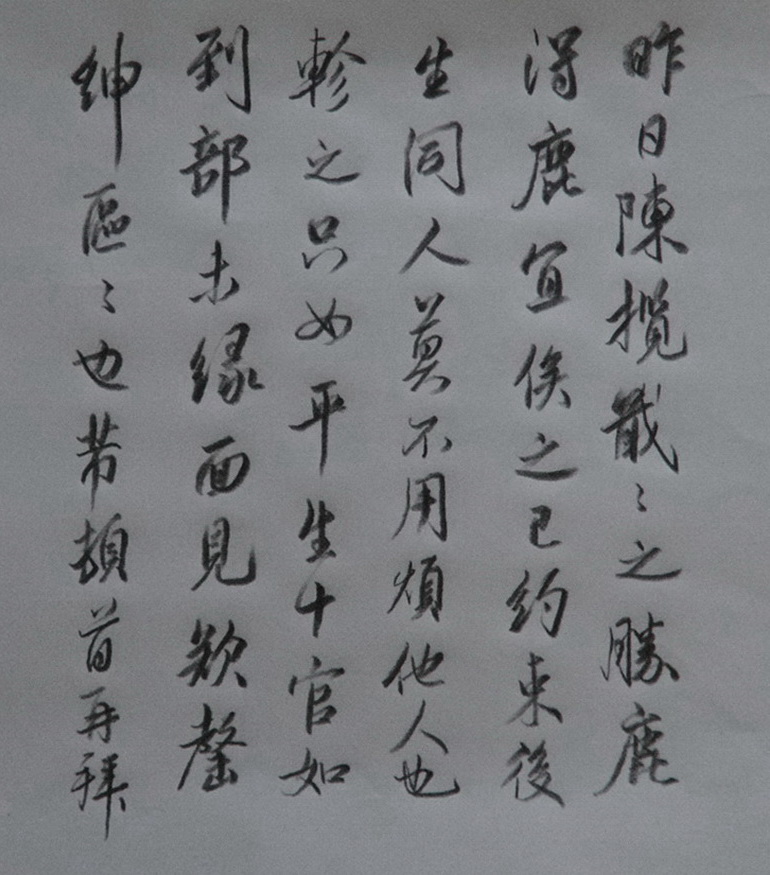 昨日陳攬戢戢之勝鹿
得鹿宜俟之已約束後
生同人莫不用煩他人也
軫之只如平生十官如
到部未緣面見欵罄
紳區區也芾頓首再拜